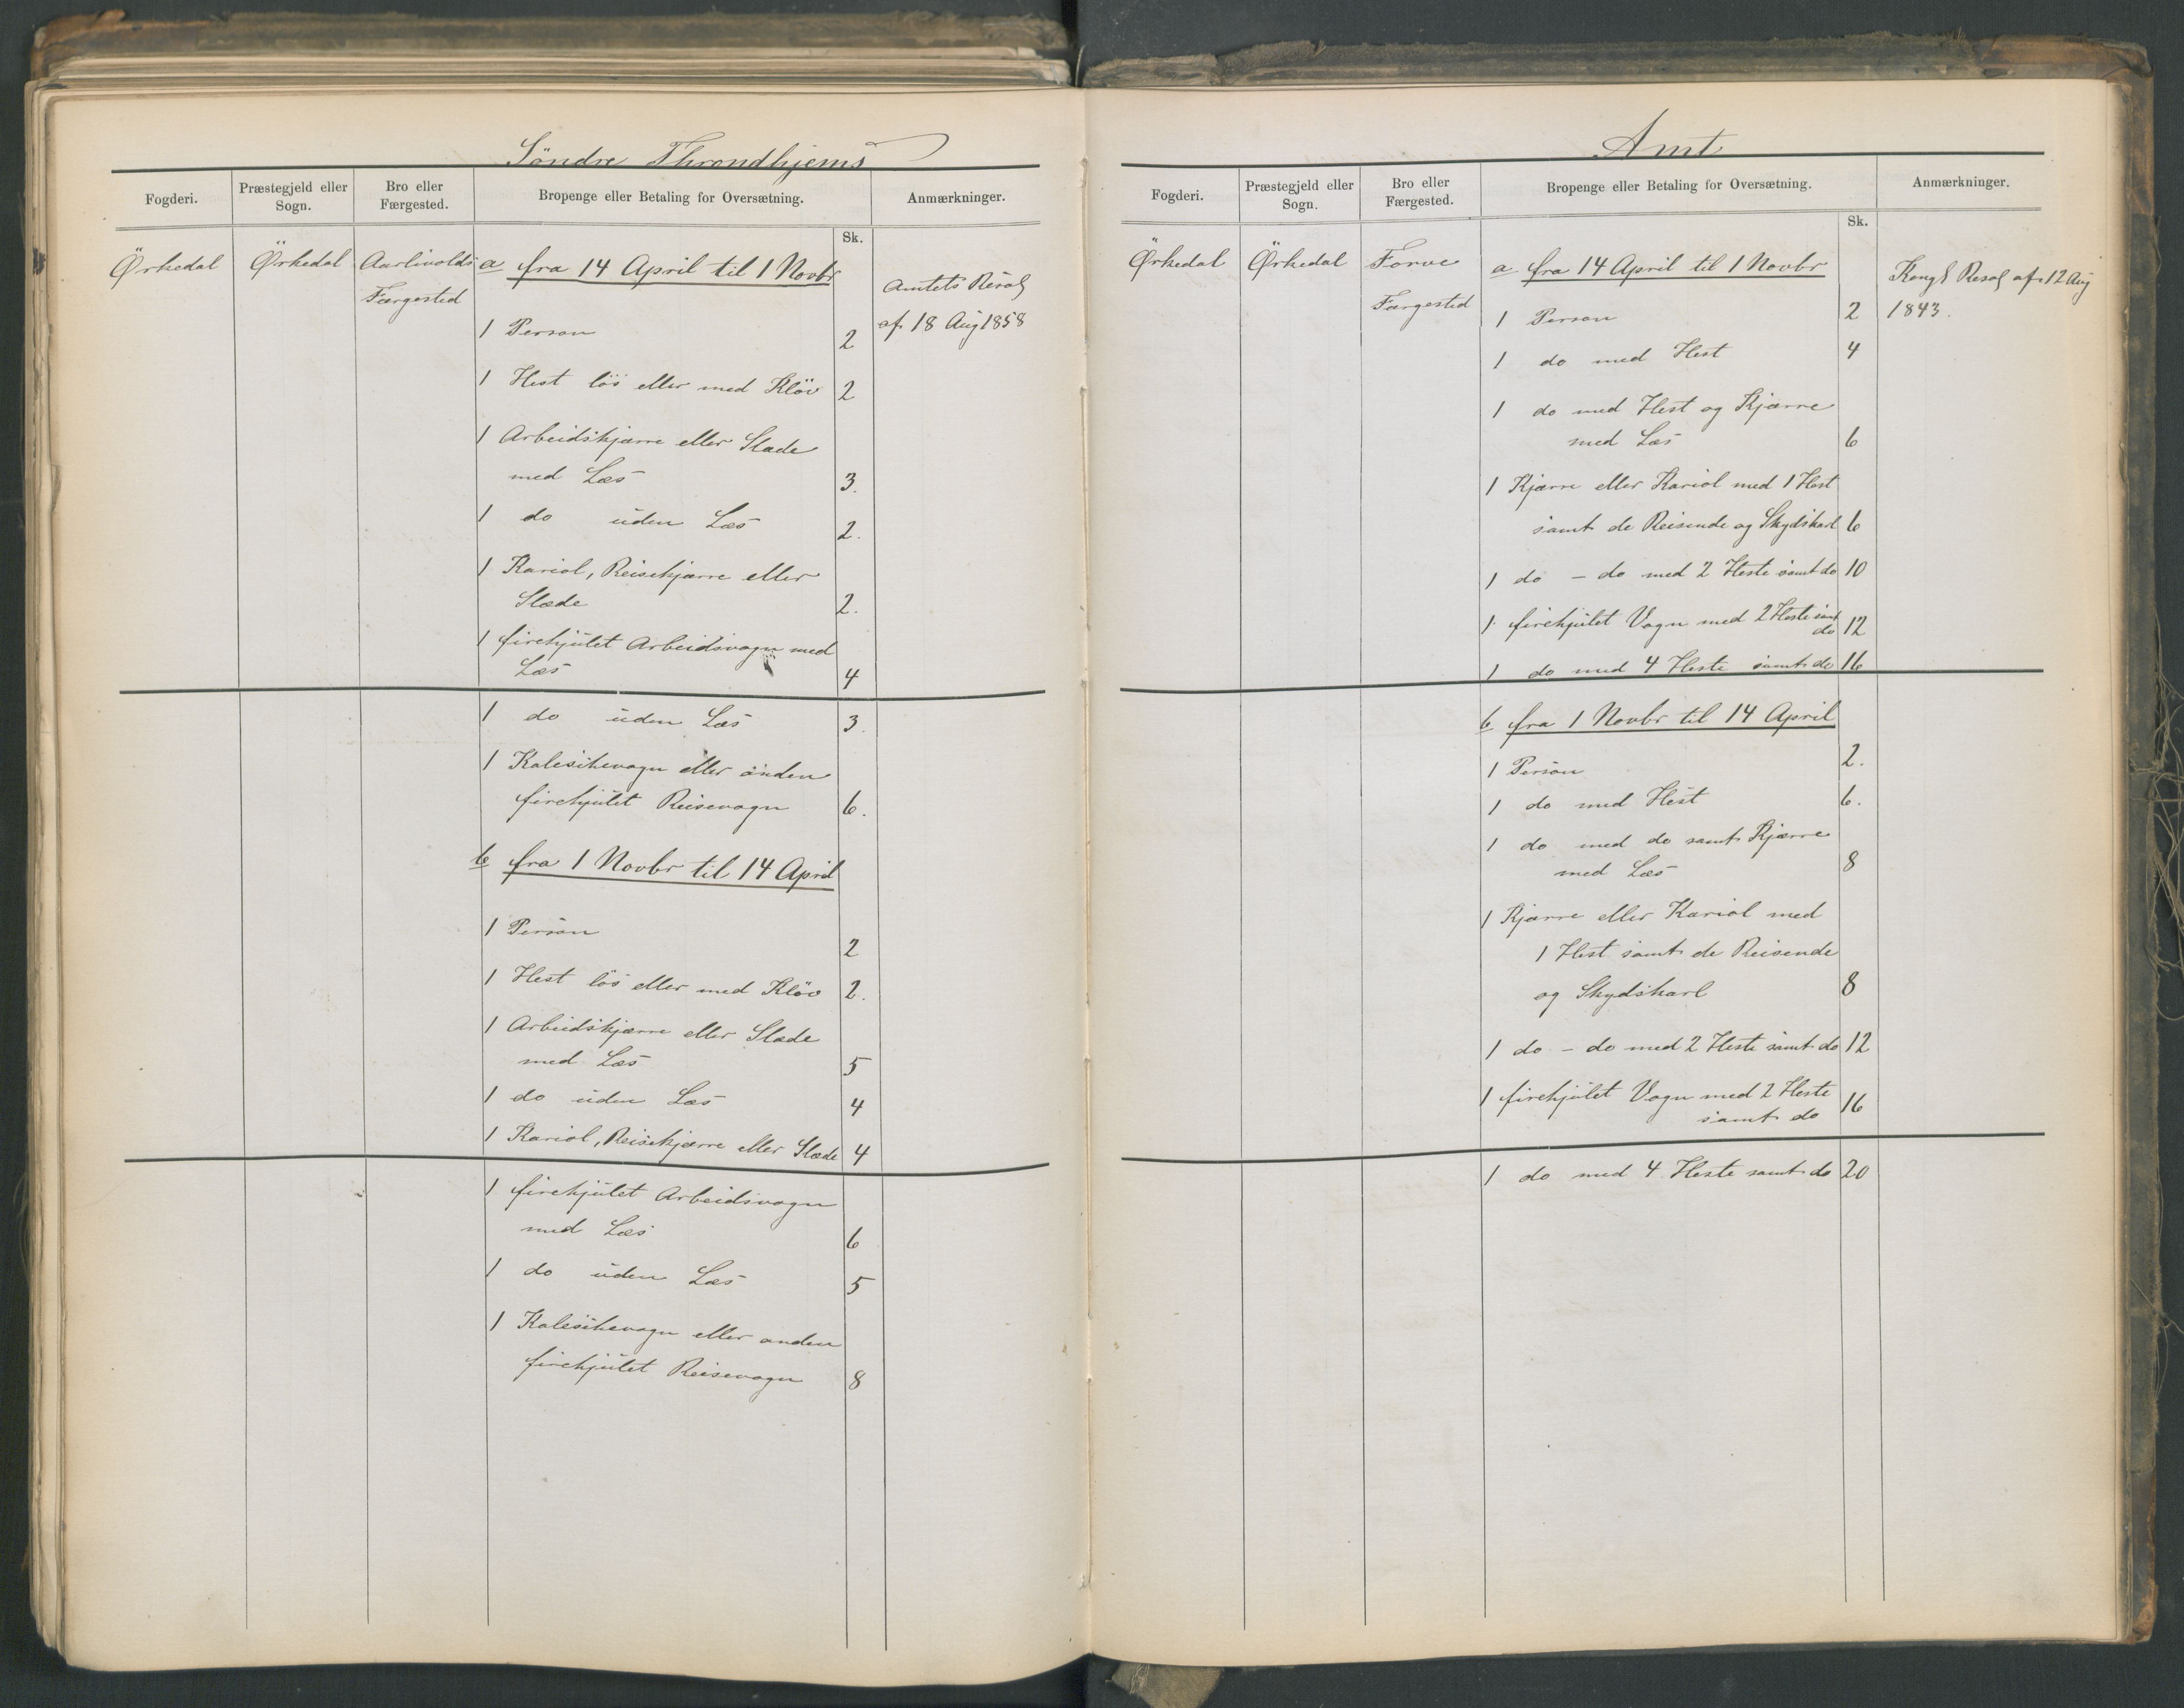 Söndre Throndhjems
Fogderi. Præstegjeld eller Sogn. Bro eller Færgested. Bropenge eller Betaling for Oversætning. Anmærkninger.
Sk.
Örkedal Örkedal Aarlivolds a fra 14 April til 1 Novbr Amtets Resol
Færgested af 18 Aug 1858
1 Person 2
1 Hest lös eller med Klöv 2
1 Arbeidskjærre eller Slæde
med Læs 3.
1 do uden Læs 2.
1 Kariol, Reisekjærre eller
Slæde 2.
1 firehjulet Arbeidsvogn med
Læs 4
1 do uden Læs 3.
1 Kaleschevogn eller anden
firehjulet Reisevogn 6.
b fra 1 Novbr til 14 April
1 Person 2
1 Hest lös eller med Klöv 2.
1 Arbeidskjærre eller Slæde
med Læs 5
1 do uden Læs 4
1 Kariol, Reisekjærre eller Slæde 4
1 firehjulet Arbeidsvogn
med Læs 6
1 do uden Læs 5
1 Kaleschevogn eller anden
firehjulet Reisevogn 8
Amt
Fogderi. Præstegjeld eller Sogn. Bro eller Færgested. Bropenge eller Betaling for Oversætning. Anmærkninger.
Sk.
Örkedal Örkedal Forve a fra 14 April til 1 Novbr Kongl Resol af 12 Aug
Færgested 1 Person 2 1843.
1 do med Hest 4
1 do med Hest og Kjærre
med Læs 6
1 Kjærre eller Kariol med 1 Hest
samt de Reisende og Skydskarl 6
1 do - do med 2 Heste samt do 10
1 firehjulet Vogn med 2 Heste samt
do 12
1 do med 4 Heste samt do 16
b fra 1 Novbr til 14 April
1 Person 2.
1 do med Hest 6.
1 do med do samt Kjærre
med Læs 8
1 Kjærre eller Kariol med
1 Hest samt de Reisende
og Skydskarl 8
1 do - do med 2 Heste samt do 12
1 firehjulet Vogn med 2 Heste
samt do 16
1 do med 4 Heste samt do 20